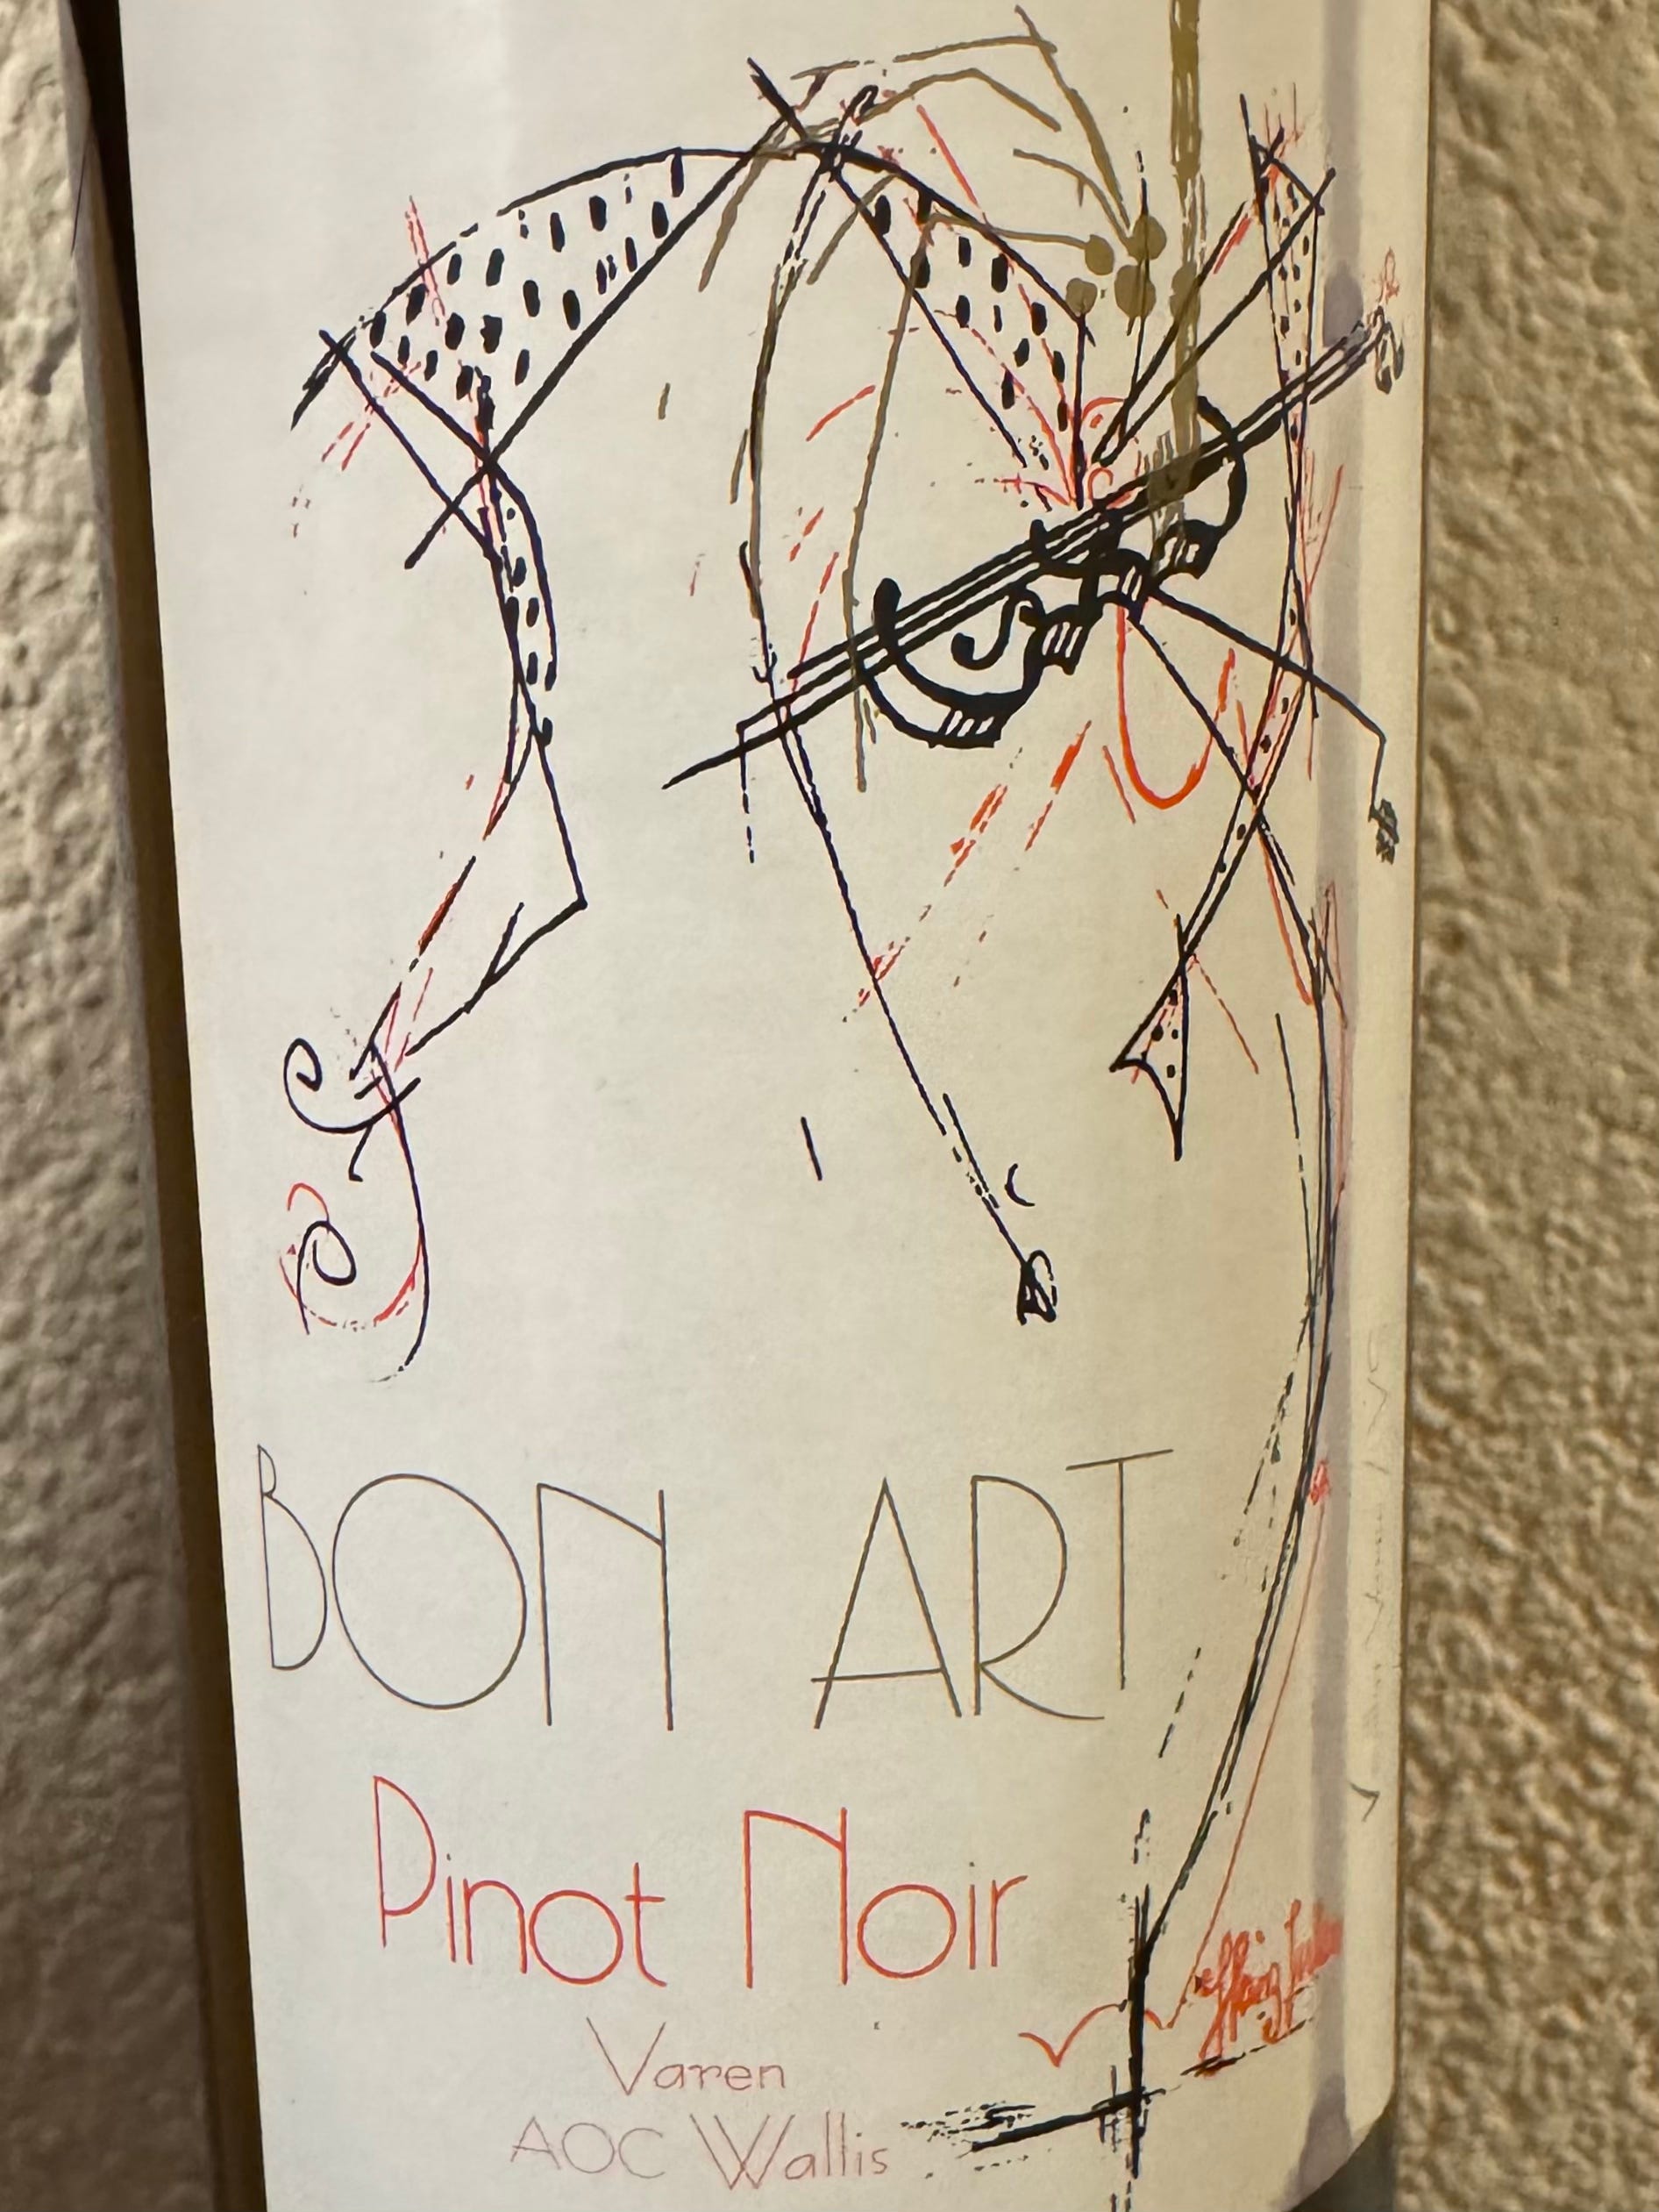 BON ART
Pinot Noir
Varen
AOC Wallis